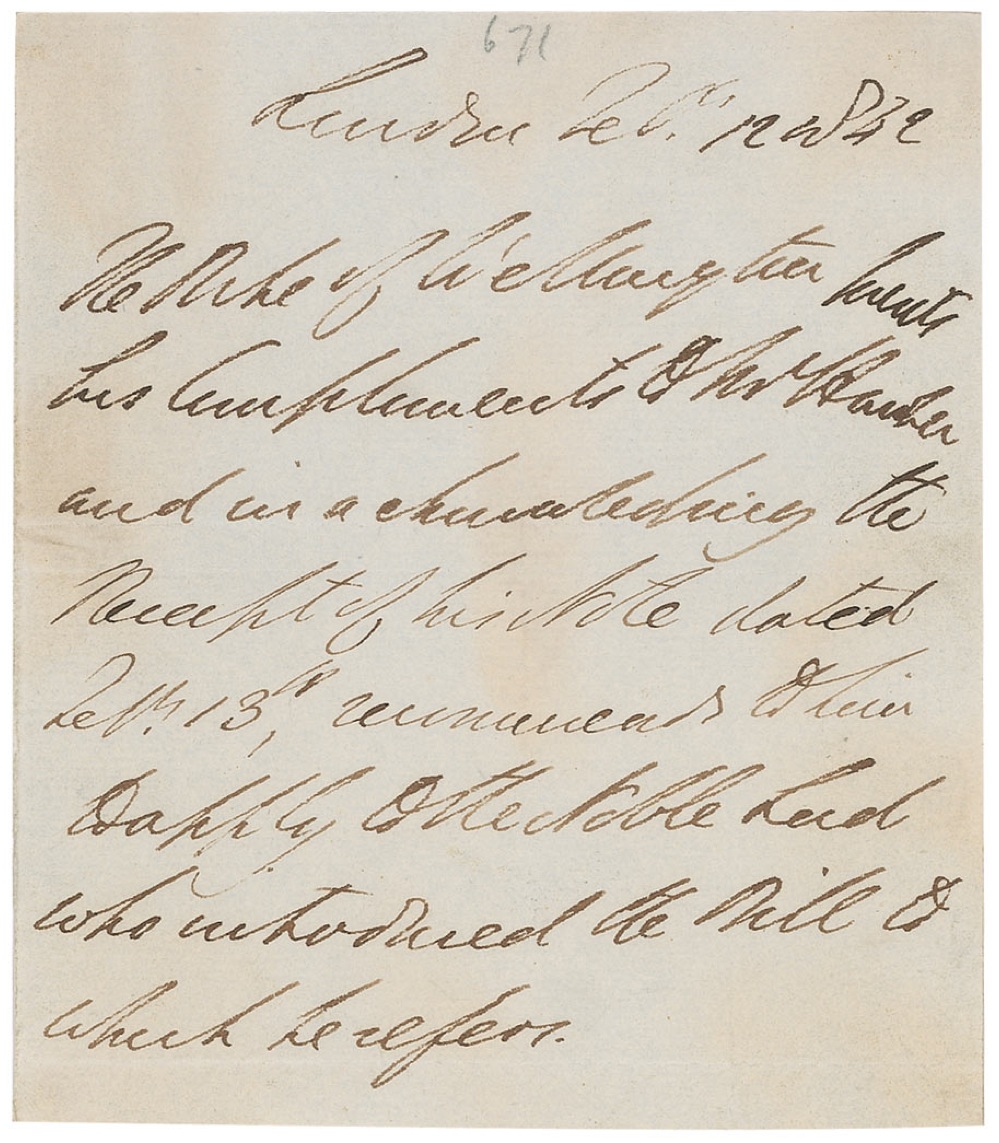 671
London Feby. 1842
The Duke of Wellington
his Compliments to Mr
and in acknowledging the
Receipt of his Note dated
Feby. 13th, recommends to him
to apply to the Noble Lord
who introduced the Bill to
which he refers.